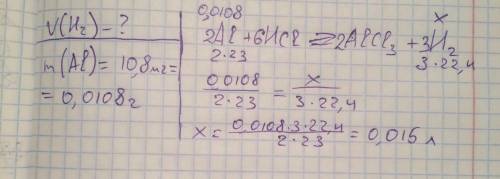 V(H₂) - ?
m(Al) = 10,8мг =
= 0,0108г
0,0108 x
2Al + 6HCl = 2AlCl₃ + 3H₂
2·23 3·22,4
0,0108/2·23 = x/3·22,4
x = 0,0108·3·22,4/2·23 = 0,015 л